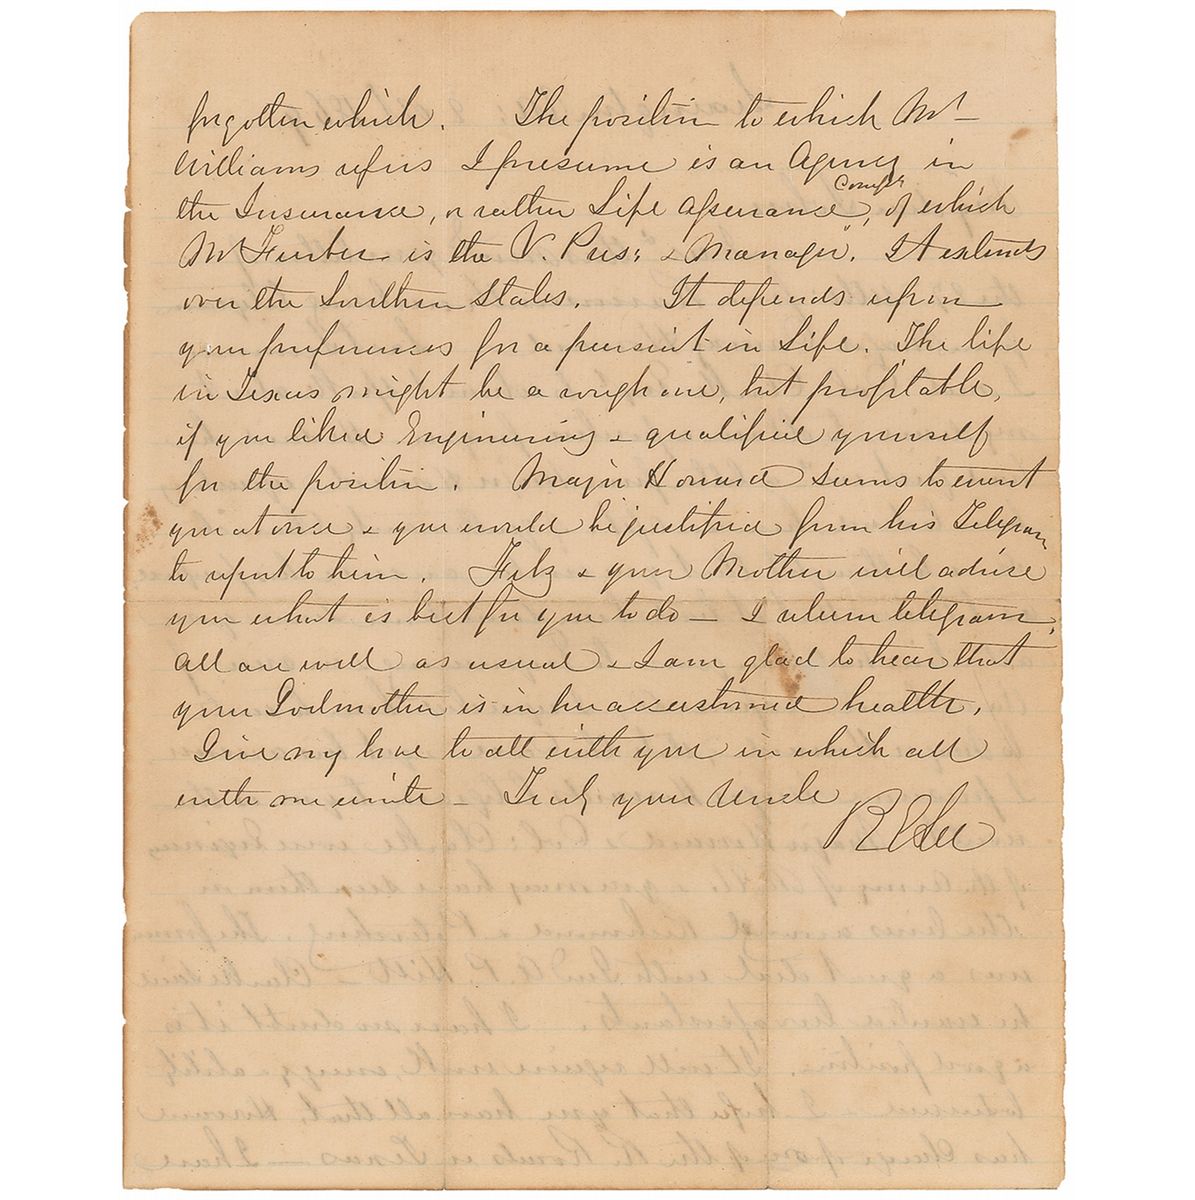 forgotten which. The position to which Mr
Williams refers I presume is an Agency in
the Insurance, or rather Life Assurance Compy, of which
Mr Furber is the V. Pres: & "Manager". It extends
over the Southern States. It depends upon
your preferences for a pursuit in Life. The life
in Texas might be a rough one, but profitable,
if you liked Engineering & qualified yourself
for the position. Major Howard seems to want
you at once & you would be justified from his Telegram
to report to him. Fitz & your Mother will advise
you what is best for you to do — I return telegram.
All are well as usual & I am glad to hear that
your Godmother is in her accustomed health.
Give my love to all with you in which all
with me unite — Truly your Uncle
R E Lee